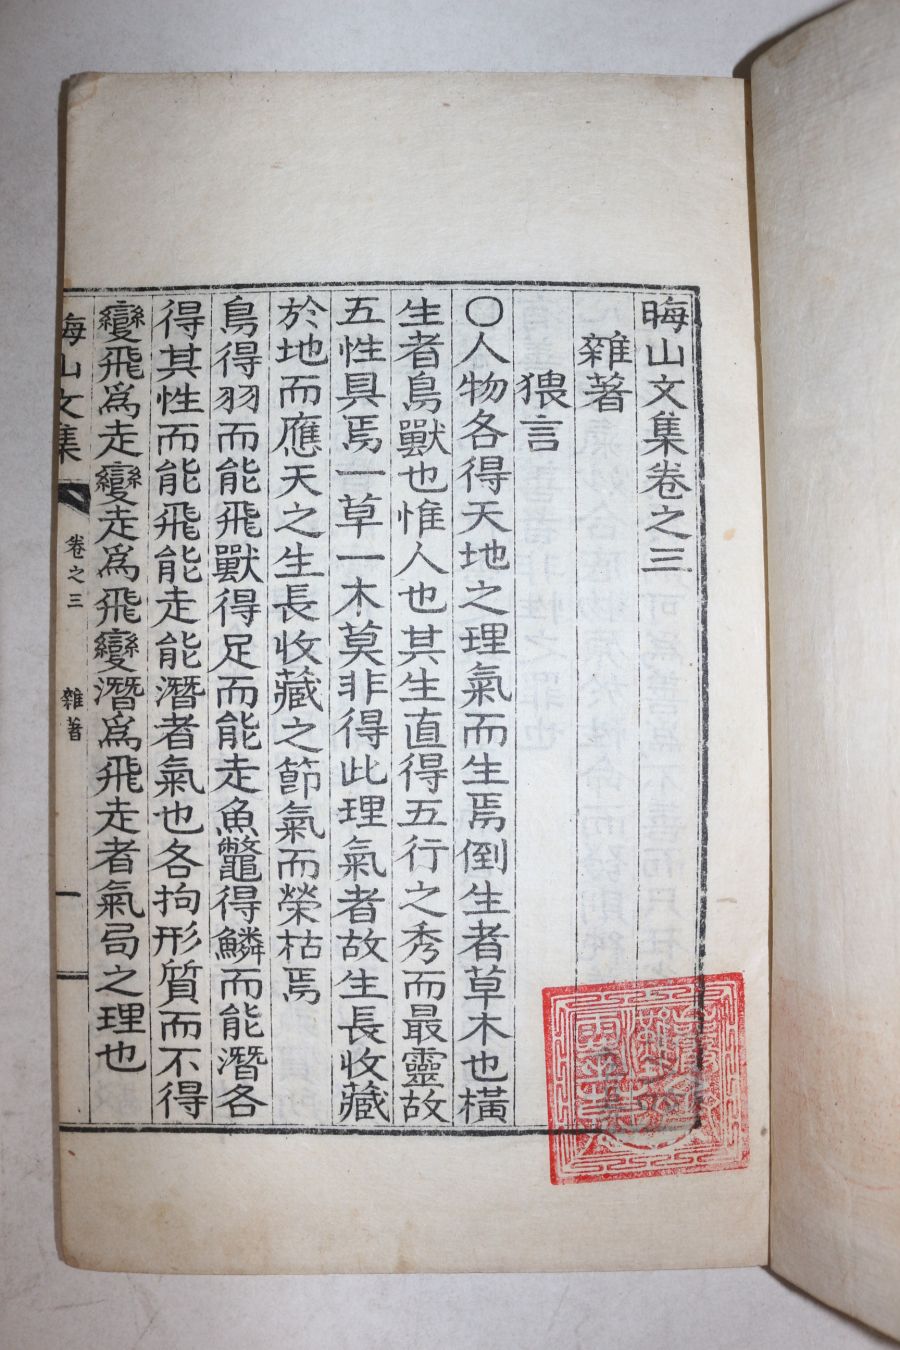 晦山文集卷之三
雜著
猥言
〇人物各得天地之理氣而生焉倒生者草木也橫
生者鳥獸也惟人也其生直得五行之秀而最靈故
五性具焉一草一木莫非得此理氣者故生長收藏
於地而應天之生長收藏之節氣而榮枯焉
鳥得羽而能飛獸得足而能走魚鼈得鱗而能潛各
得其性而能飛能走能潛者氣也各拘形質而不得
變飛爲走變走爲飛變潛爲飛走者氣局之理也
晦山文集
卷之三
雜著